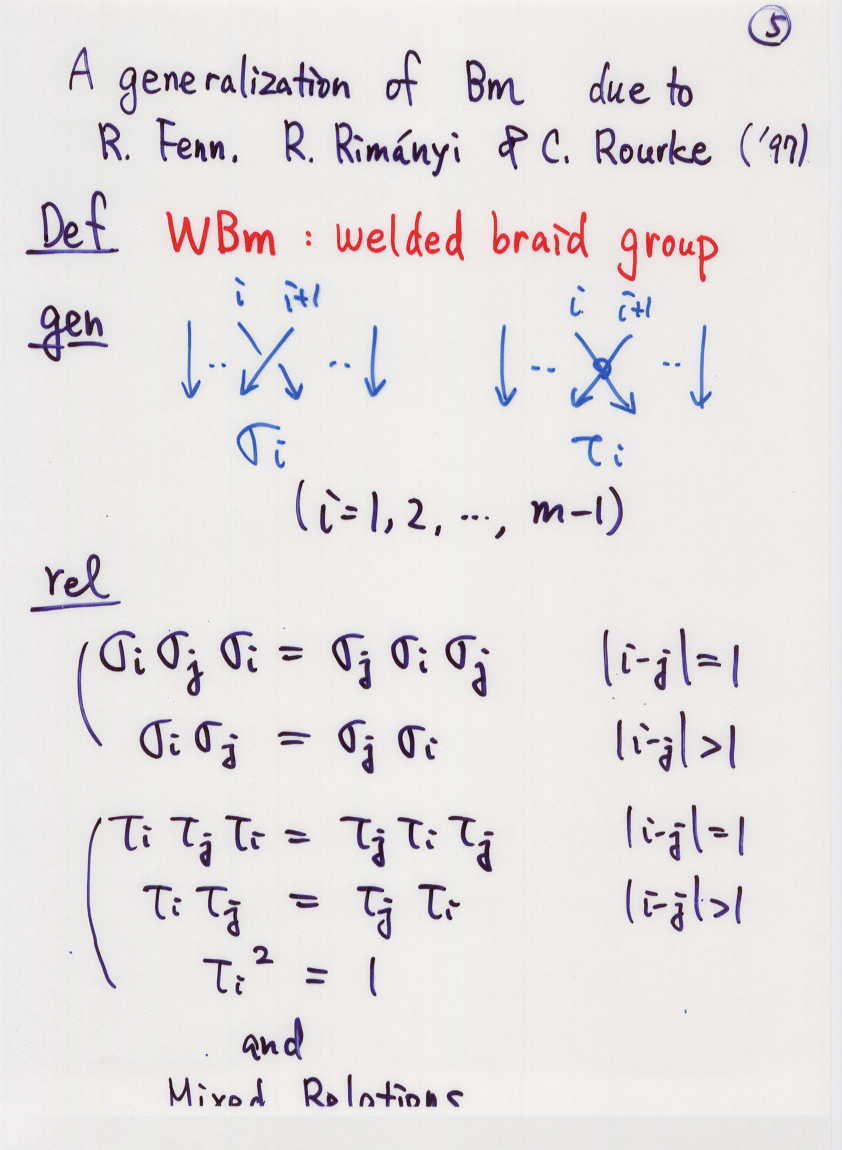 ⑤
A generalization of Bm due to
R. Fenn. R. Rimányi & C. Rourke ('97)
Def WBm : welded braid group
gen i i+1 i i+1
.. .. .. ..
σi τi
(i=1, 2, ..., m-1)
rel
σi σj σi = σj σi σj |i-j|=1
σi σj = σj σi |i-j|>1
τi τj τi = τj τi τj |i-j|=1
τi τj = τj τi |i-j|>1
τi² = 1
and
Mixed Relations